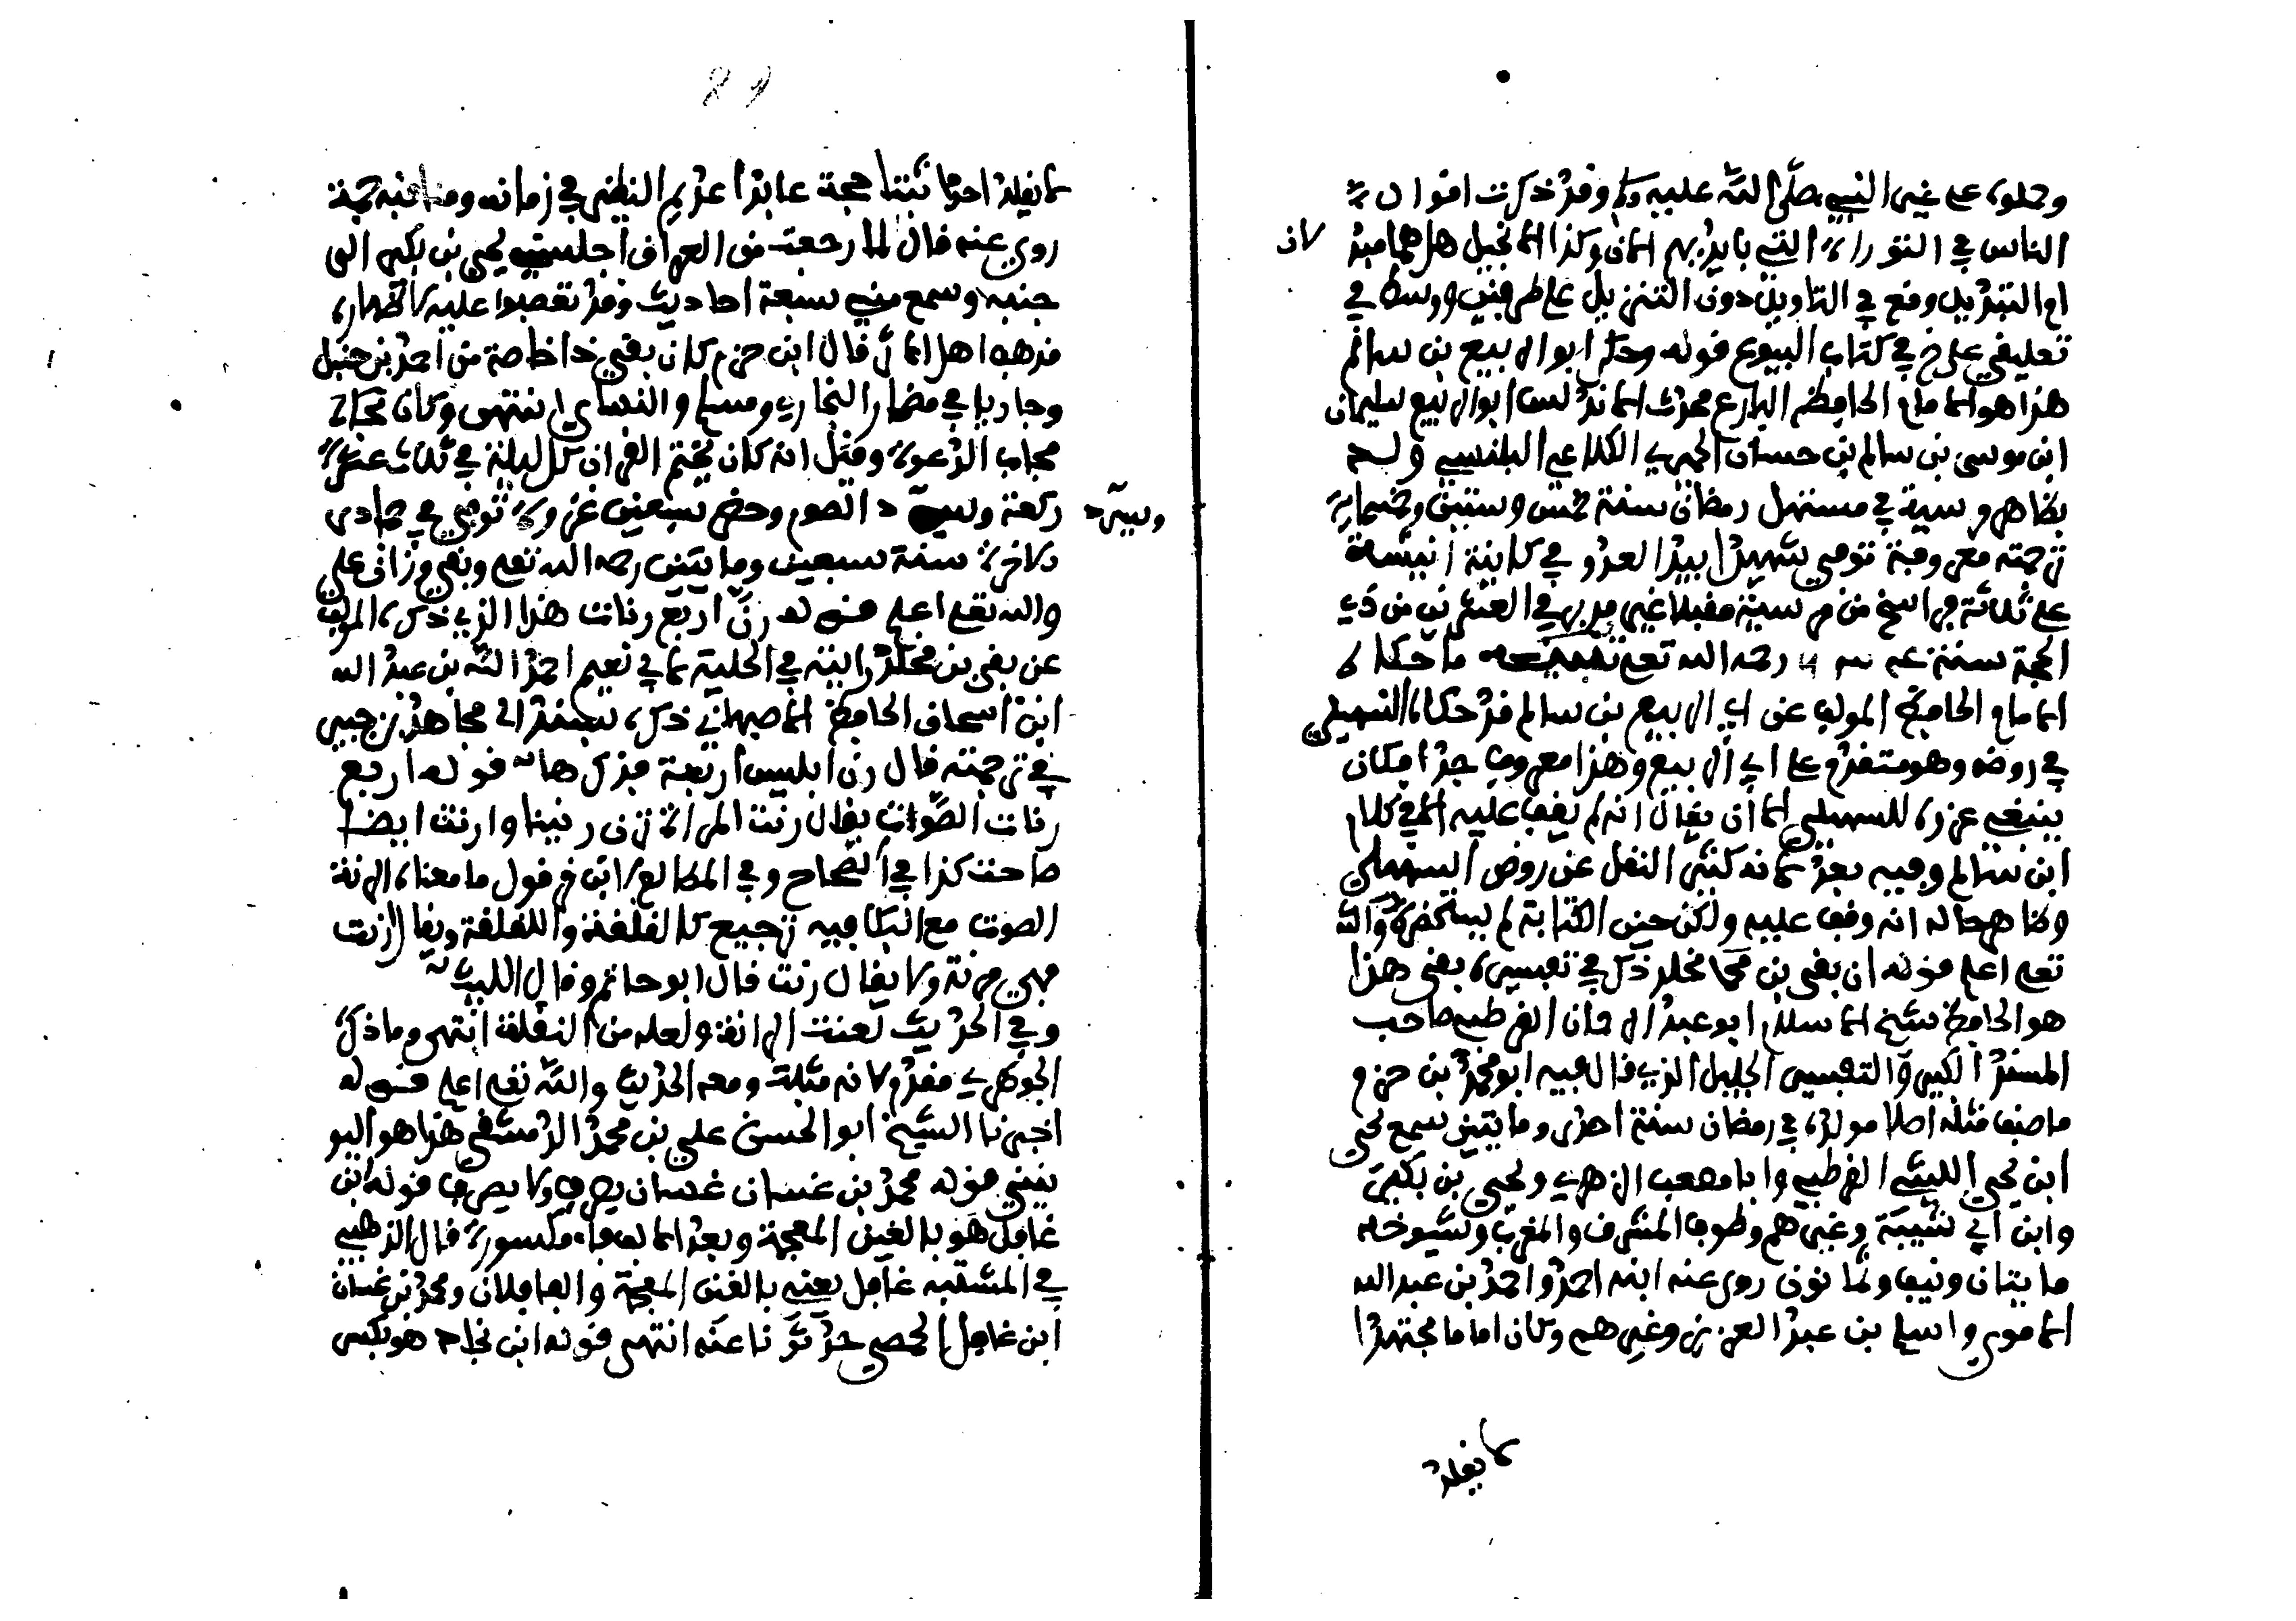 وحملوه على غير النبي صلى الله عليه وسلم وقد ذكرت اقوال
الناس في التوراة التي بايديهم الان وكذا الانجيل هل هما مبد
لان
او التبديل وقع في التاويل دون التنزيل على طرفين ووسط في
تعليقي على خ في كتاب البيوع قوله وحكى ابو الربيع بن سالم
هذا هو الامام الحافظ البارع محدث الاندلس ابو الربيع سليمان
ابن موسى بن سالم بن حسان الحميري الكلاعي البلنسي ولد
بظاهر مرسية في مستهل رمضان سنة خمس وستين وخمسماية
ترجمته معروفة توفي شهيدا بيد العدو في كاينة انيشة
على ثلاثة فراسخ من مرسية مقبلا غير مدبر في العشرين من ذي
الحجة سنة رحمه الله تعالى ما حكاه
الامام الحافظ المولف عن ابي الربيع بن سالم قد حكاه السهيلي
في روضه وهو متقدم على ابي الربيع وهذا معروف جدا فكان
ينبغي عزوه للسهيلي الا ان يقال انه لم يقف عليه الا في كلام
ابن سالم وفيه بعد لانه كثير النقل عن روض السهيلي
وظاهر حاله انه وقف عليه ولكن حين الكتابة لم يستحضره والله
تعلى اعلم قوله ان بقي بن مخلد ذكر في تفسيره بقي هذا
هو الحافظ شيخ الاسلام ابو عبد الرحمان القرطبي صاحب
المسند الكبير والتفسير الجليل الذي قال فيه ابو محمد بن حزم
ما صنف مثله اصلا مولده في رمضان سنة احدى ومايتين سمع يحيى
ابن يحيى الليثي القرطبي وابا مصعب الزهري ويحيى بن بكير
وابن ابي شيبة وغيرهم وطوف المشرق والمغرب وشيوخه
مايتان ونيف وثمانون روى عنه ابنه احمد واحمد بن عبد الله
الاموي واسلم بن عبد العزيز وغيرهم وكان اماما مجتهدا
لا يقلد
لا يقلد احدا ثبتا حجة عابدا عديم النظير في زمانه ومناقبه جمة
روي عنه قال لما رجعت من العراق اجلسني يحيى بن بكير الى
جنبه وسمع مني سبعة احاديث وقد تعصبوا عليه لاظهاره
مذهب اهل الاثر قال ابن حزم كان بقي ذا خاصة من احمد بن حنبل
وجاريا في مضمار البخاري ومسلم والنساي انتهى وكان
مجاب الدعوة وقيل انه كان يختم القران كل ليلة في ثلاث عشرة
ركعة ويسرد الصوم وحضر سبعين غزوة توفي في جمادى
ويسرد
الاخرة سنة سبعين ومايتين رحمه الله تعلى وبقي وزان علي
والله تعلى اعلم قوله رن اربع رنات هذا الذي ذكره المولف
عن بقي بن مخلد رايته في الحلية لابي نعيم احمد بن عبد الله
ابن اسحاق الحافظ الاصبهاني ذكره بسنده الى مجاهد بن جبير
في ترجمته قال رن ابليس اربعة فذكرها قوله اربع
رنات الصوت يقال رنت المراة ترن رنينا وارنت ايضا
صاحت كذا في الصحاح وفي المطالع لابن قرقول ما معناه الرنة
الصوت مع البكا فيه ترجيع كالقلقلة واللقلقة ويقال ارنت
فهي مرنة ولا يقال رنت قال ابو حاتم وقال الليث
وفي الحديث لعنت الرانة ولعله من النقلة انتهى وما ذكره
الجوهري مقدم لانه مثله ومعه الحديث والله تعلى اعلم قوله
اخبرنا الشيخ ابو الحسن علي بن محمد الدمشقي هذا هو اليو
نيني قوله محمد بن غسان غسان يصرف ولا يصرف قوله ابن
غافل هو بالغين المعجمة وبعد الالف فاء مكسورة قال الذهبي
في المشتبه غافل يعني بالغين المعجمة والفا فلان ومحمد بن غسان
ابن غافل الحمصي حدثونا عنه انتهى قوله ابن نجاد هو بكسر